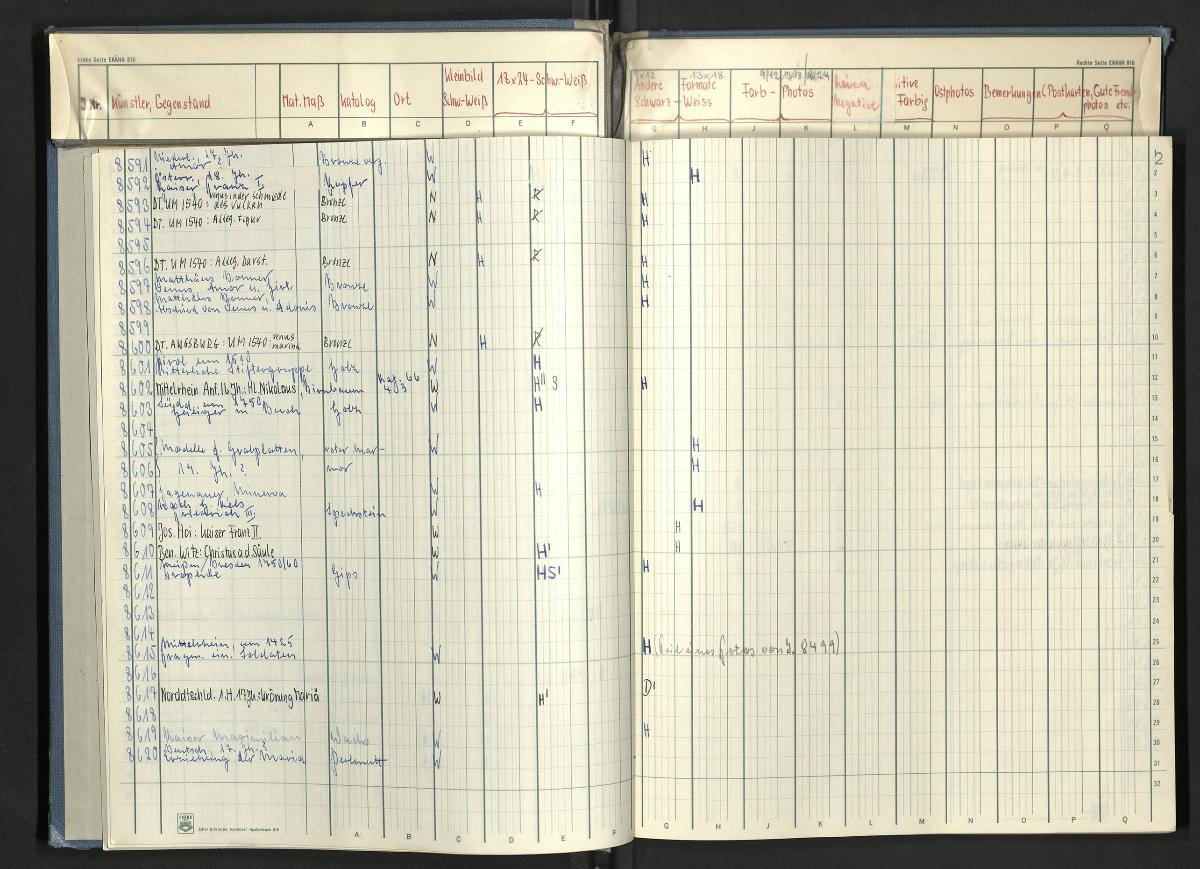 Linke Seite EKAHA 816
J.Nr. Künstler, Gegenstand Mat. Maß Katalog Ort Kleinbild Schw-Weiß 18x24-Schw-Weiß
A B C D E F
Rechte Seite EKAHA 816
9x12 Andere Formate 13x18 Schwarz-Weiss Farb-Photos Negative sitive Farbig Ostphotos Bemerkungen (Postkarten, Gute Fremdphotos etc.
G H J K L M N O P Q
2
8591 17. Jh. Amor? Bronze verg. W H
8592 Österr., 18. Jh. Kaiser Franz I Kupfer W H
8593 DT. UM 1540: Venus in der Schmiede des Vulkan Bronze N H R H
8594 DT. UM 1540: Alleg. Figur Bronze N H R H
8595
8596 DT. UM 1540: Alleg. Darst. Bronze N H R H
8597 Matthäus Donner, Venus, Amor u. Bronze W H
8598 Matthäus Donner, Abschied von Venus u. Adonis Bronze W H
8599
8600 DT. AUGSBURG: UM 1540: Venus marina Bronze N H R
8601 Tirol um 1510 Ritterliche Stiftergruppe Holz W H
8602 Mittelrhein Anf. 16. Jh: Hl. Nikolaus, Birnbaum Kat. 66 W H 3 H
8603 Südd. um 1750 Heiliger m. Buch Holz W H
8604
8605 Modelle f. Grabplatten, roter Mar- W H
8606 17. Jh.? mor H
8607 Minerva W H
8608 Friedrich III. Speckstein W H
8609 Jos. Hoi: Kaiser Franz II. W H
8610 Ben. Witz: Christus a.d. Säule W H' H
8611 Meißen/Dresden 1750/60 Gips W HS' H
8612
8613
8614
8615 Mittelrhein, um 1425 Fragm. ein. Soldaten W H (Teil eines Fotos von J. 8499)
8616
8617 Norddtschld. 1.H. 17Jh: Krönung Mariä W H' D'
8618
8619 Kaiser Maximilian Wachs W H
8620 Deutsch, 17. Jh.? Erziehung der Maria Perlmutt W
2 3 4 5 6 7 8 9 10 11 12 13 14 15 16 17 18 19 20 21 22 23 24 25 26 27 28 29 30 31 32
EKAHA
A B C D E F
G H J K L M N O P Q